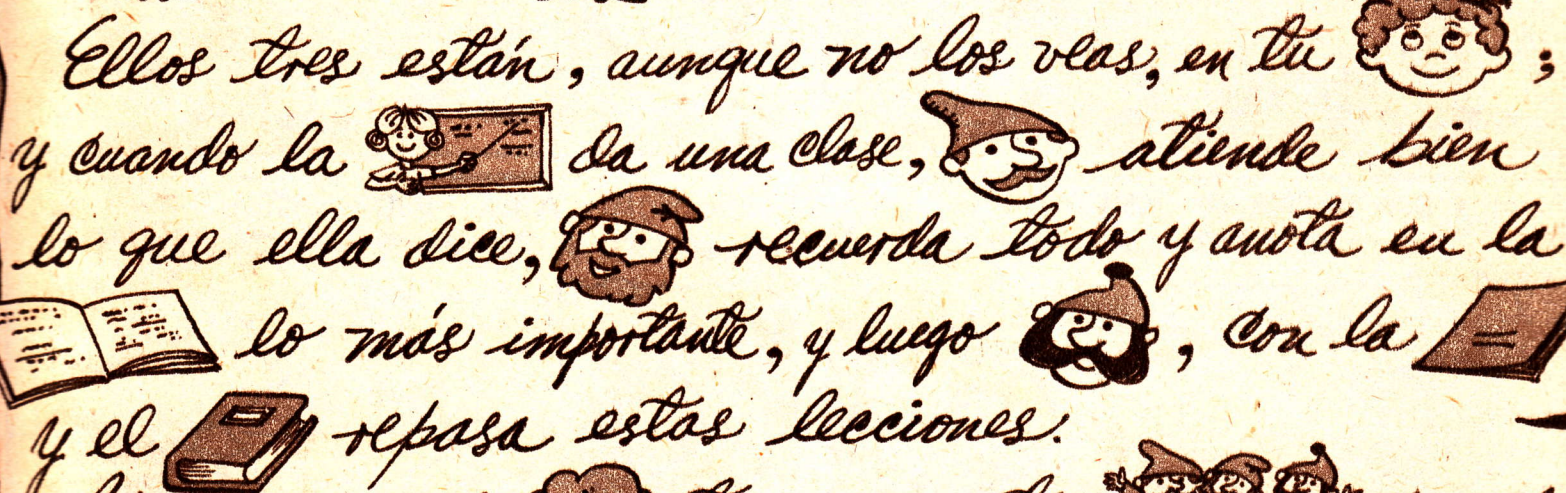 Ellos tres están, aunque no los veas, en tu ;
y cuando la da una clase, atiende bien
lo que ella dice, recuerda todo y anota en la
lo más importante, y luego , con la
y el repasa estas lecciones.